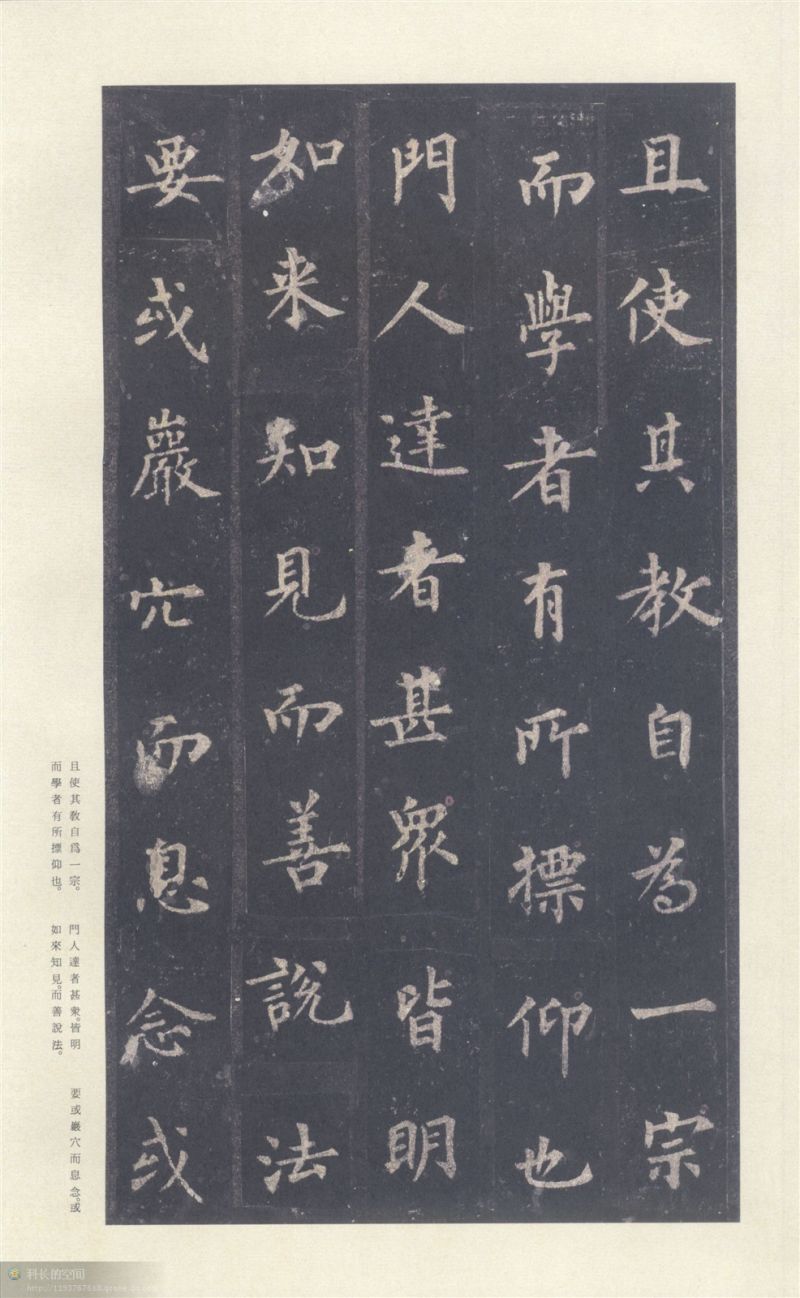 且使其教自為一宗
而學者有所摽仰也
門人達者甚眾皆明
如来知見而善說法
要或巖穴而息念或
且使其教自爲一宗。
而學者有所摽仰也。
門人達者甚衆。皆明
如來知見。而善說法。
要或巖穴而息念。或
科长的空间